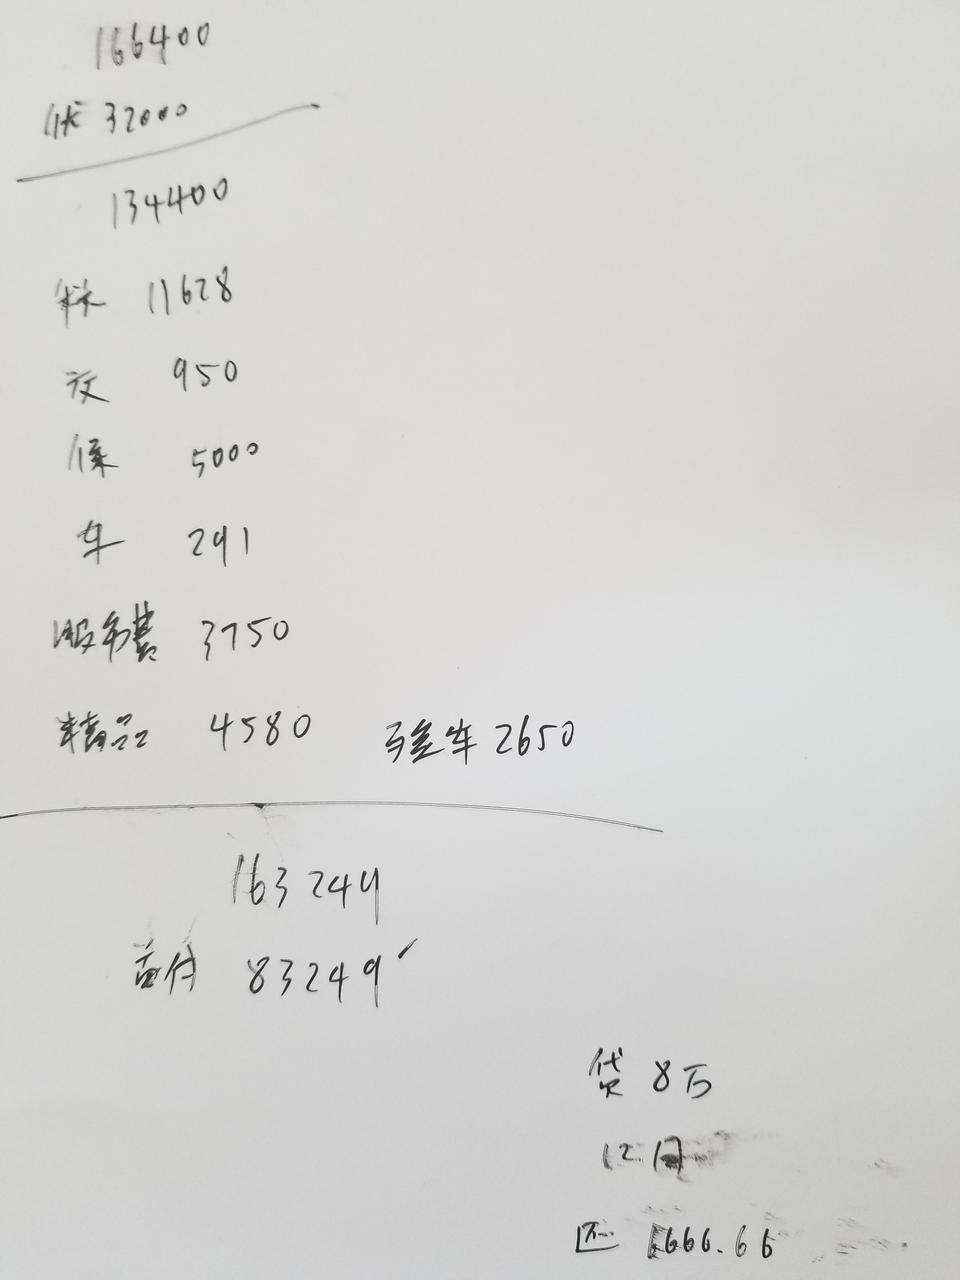 166400
优 32000
134400
税 11628
交 950
保 5000
车 291
服务费 3750
精品 4580 验车 2650
163249
首付 83249
贷 8万
12月
还 6666.66